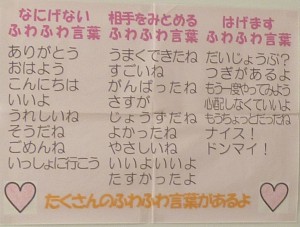 なにげない
ふわふわ言葉
ありがとう
おはよう
こんにちは
いいよ
うれしいね
そうだね
ごめんね
いっしょに行こう
相手をみとめる
ふわふわ言葉
うまくできたね
すごいね
がんばったね
さすが
じょうずだね
よかったね
やさしいね
いいよいいよ
たすかったよ
はげます
ふわふわ言葉
だいじょうぶ?
つぎがあるよ
もう一度やってみよう
心配しなくていいよ
もうちょっとだったね
ナイス!
ドンマイ!
たくさんのふわふわ言葉があるよ